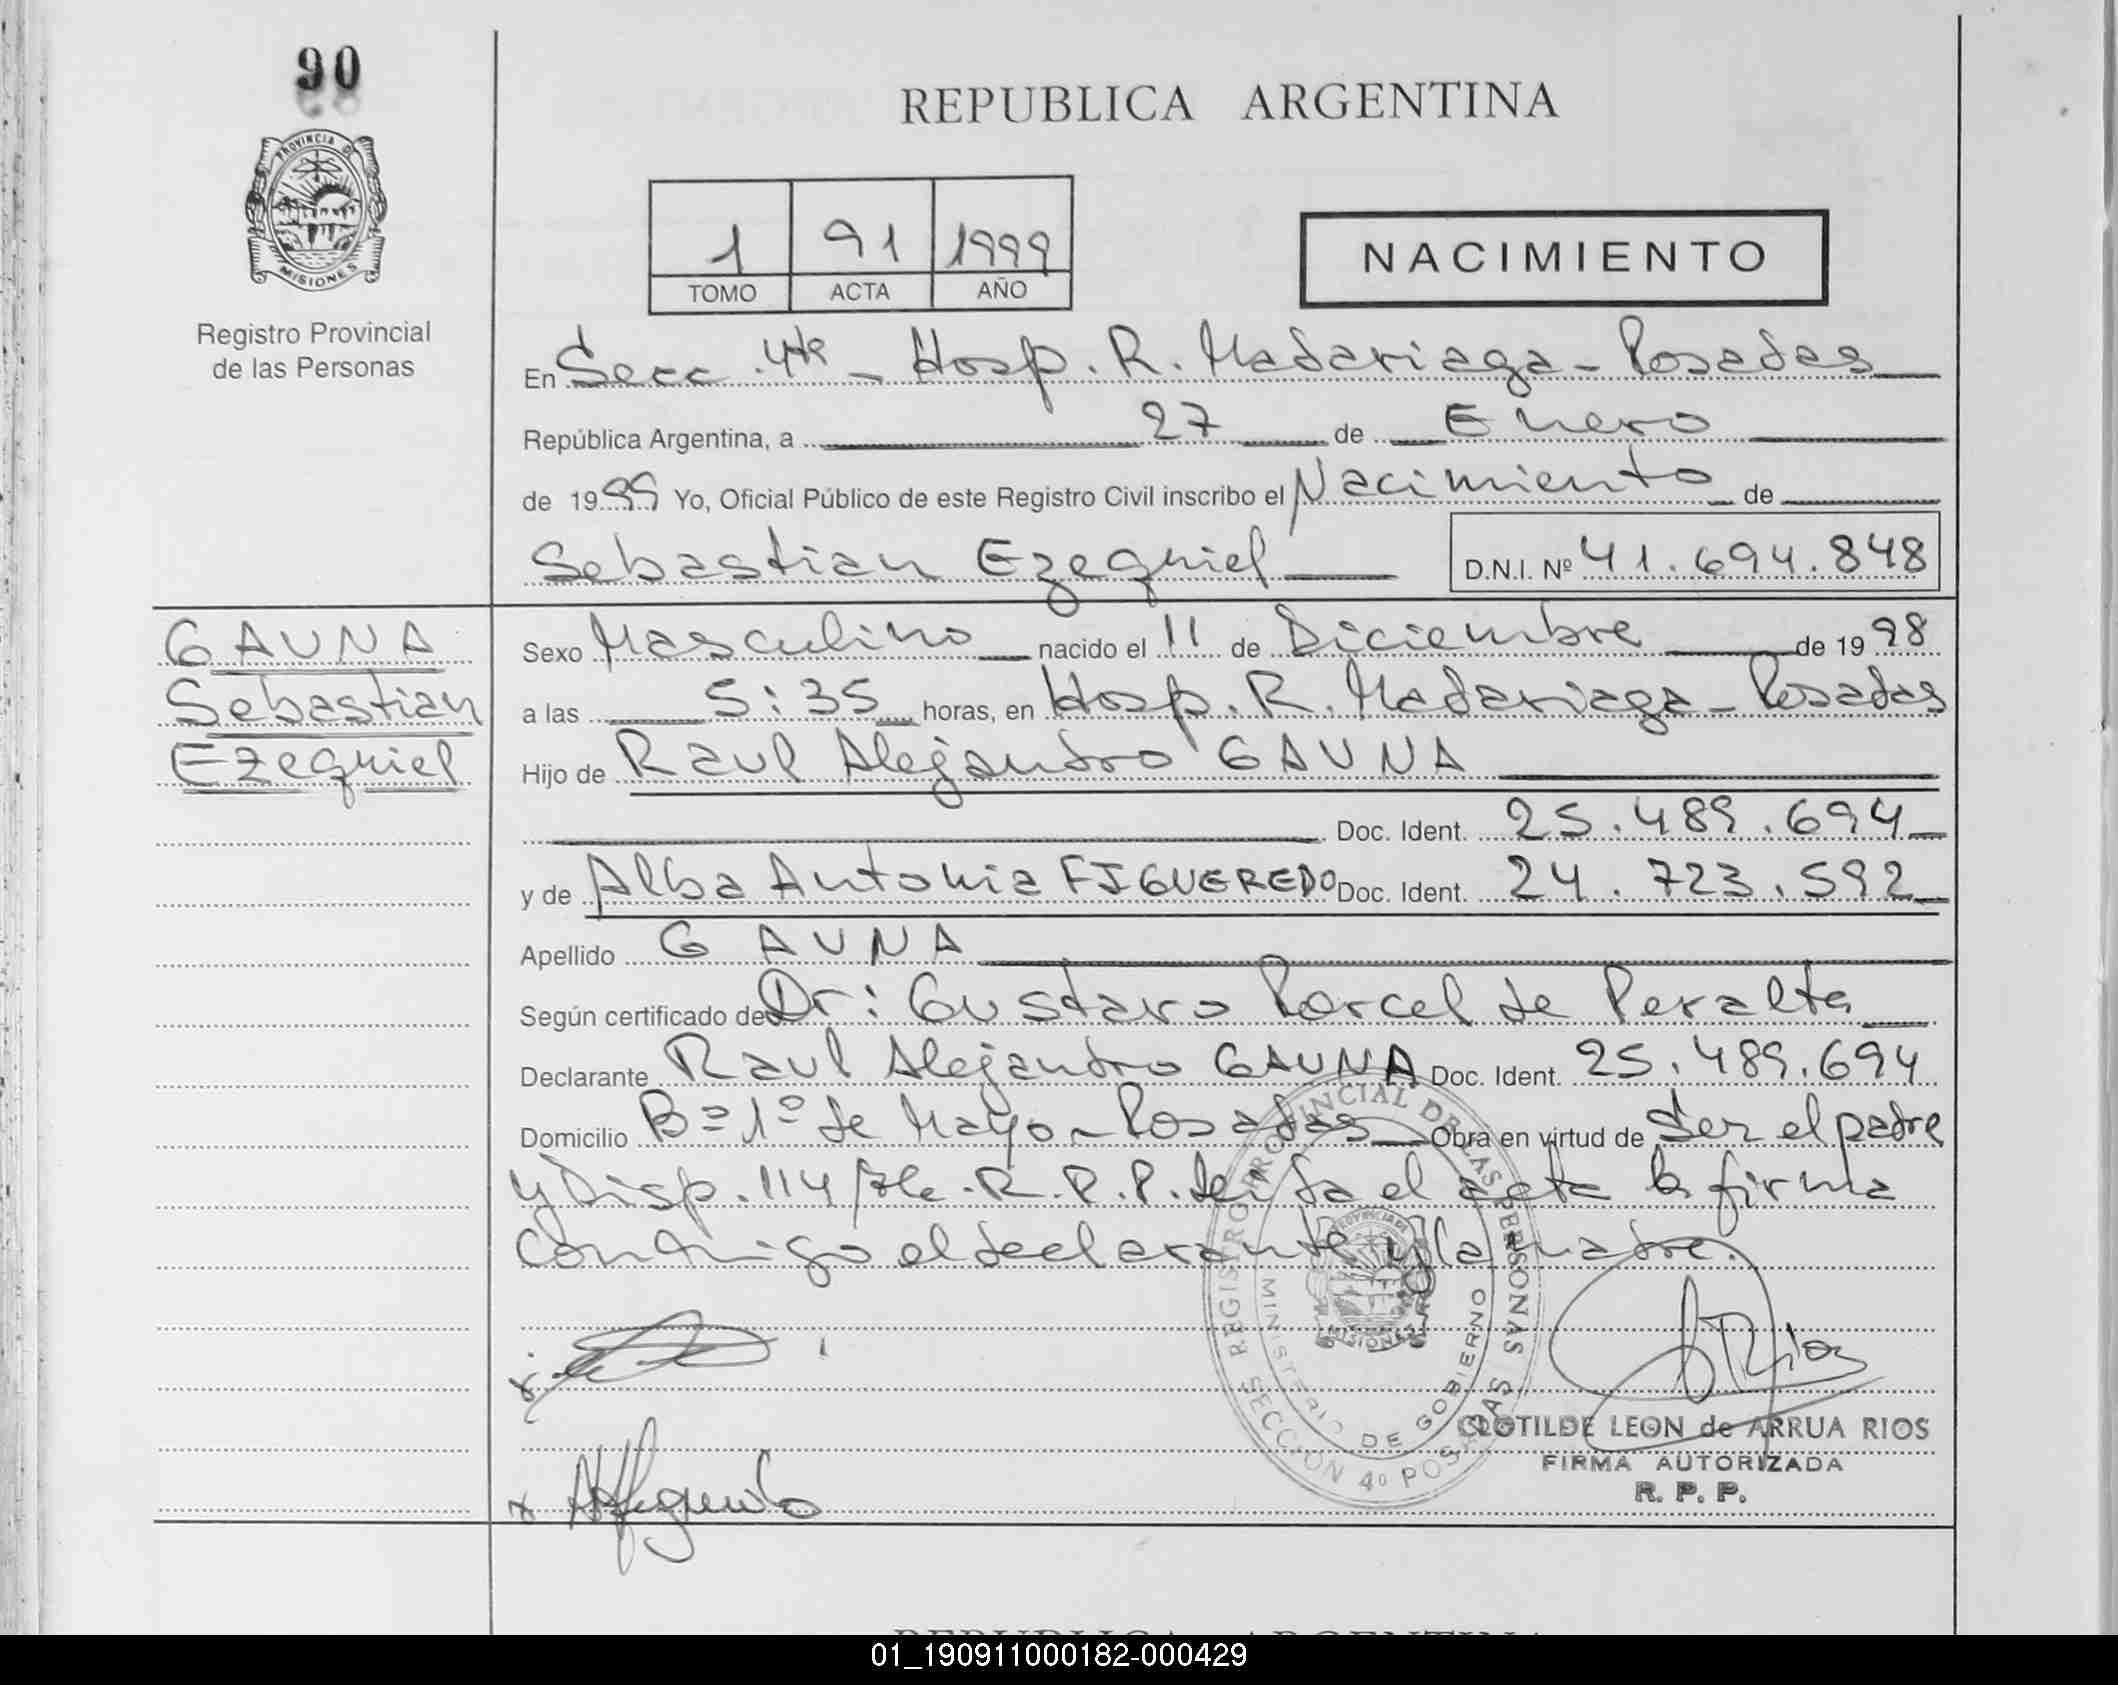 90
PROVINCIA DE
MISIONES
Registro Provincial
de las Personas
REPUBLICA ARGENTINA
1 91 1999
TOMO ACTA AÑO
NACIMIENTO
En Secc. 4ta - Hosp. R. Madariaga - Posadas
República Argentina, a 27 de Enero
de 1999 Yo, Oficial Público de este Registro Civil inscribo el Nacimiento de
Sebastian Ezequiel D.N.I. Nº 41.694.848
GAUNA
Sebastian
Ezequiel
Sexo Masculino nacido el 11 de Diciembre de 1998
a las 5:35 horas, en Hosp. R. Madariaga - Posadas
Hijo de Raul Alejandro GAUNA
Doc. Ident. 25.489.694
y de Alba Antonia FIGUEREDO Doc. Ident. 24.723.592
Apellido GAUNA
Según certificado de Dr: Gustavo Porcel de Peralta
Declarante Raul Alejandro GAUNA Doc. Ident. 25.489.694
Domicilio Bº 1º de Mayo - Posadas Obra en virtud de Ser el padre
y Disp. 114 R.P.P. Leida el acta la firma
conmigo el declarante y la madre.
REGISTRO PROVINCIAL DE LAS PERSONAS
MINISTERIO DE GOBIERNO
SECCION 4º POSADAS
PROVINCIA DE
MISIONES
Rios
CLOTILDE LEON de ARRUA RIOS
FIRMA AUTORIZADA
R. P. P.
REPUBLICA ARGENTINA
01_190911000182-000429